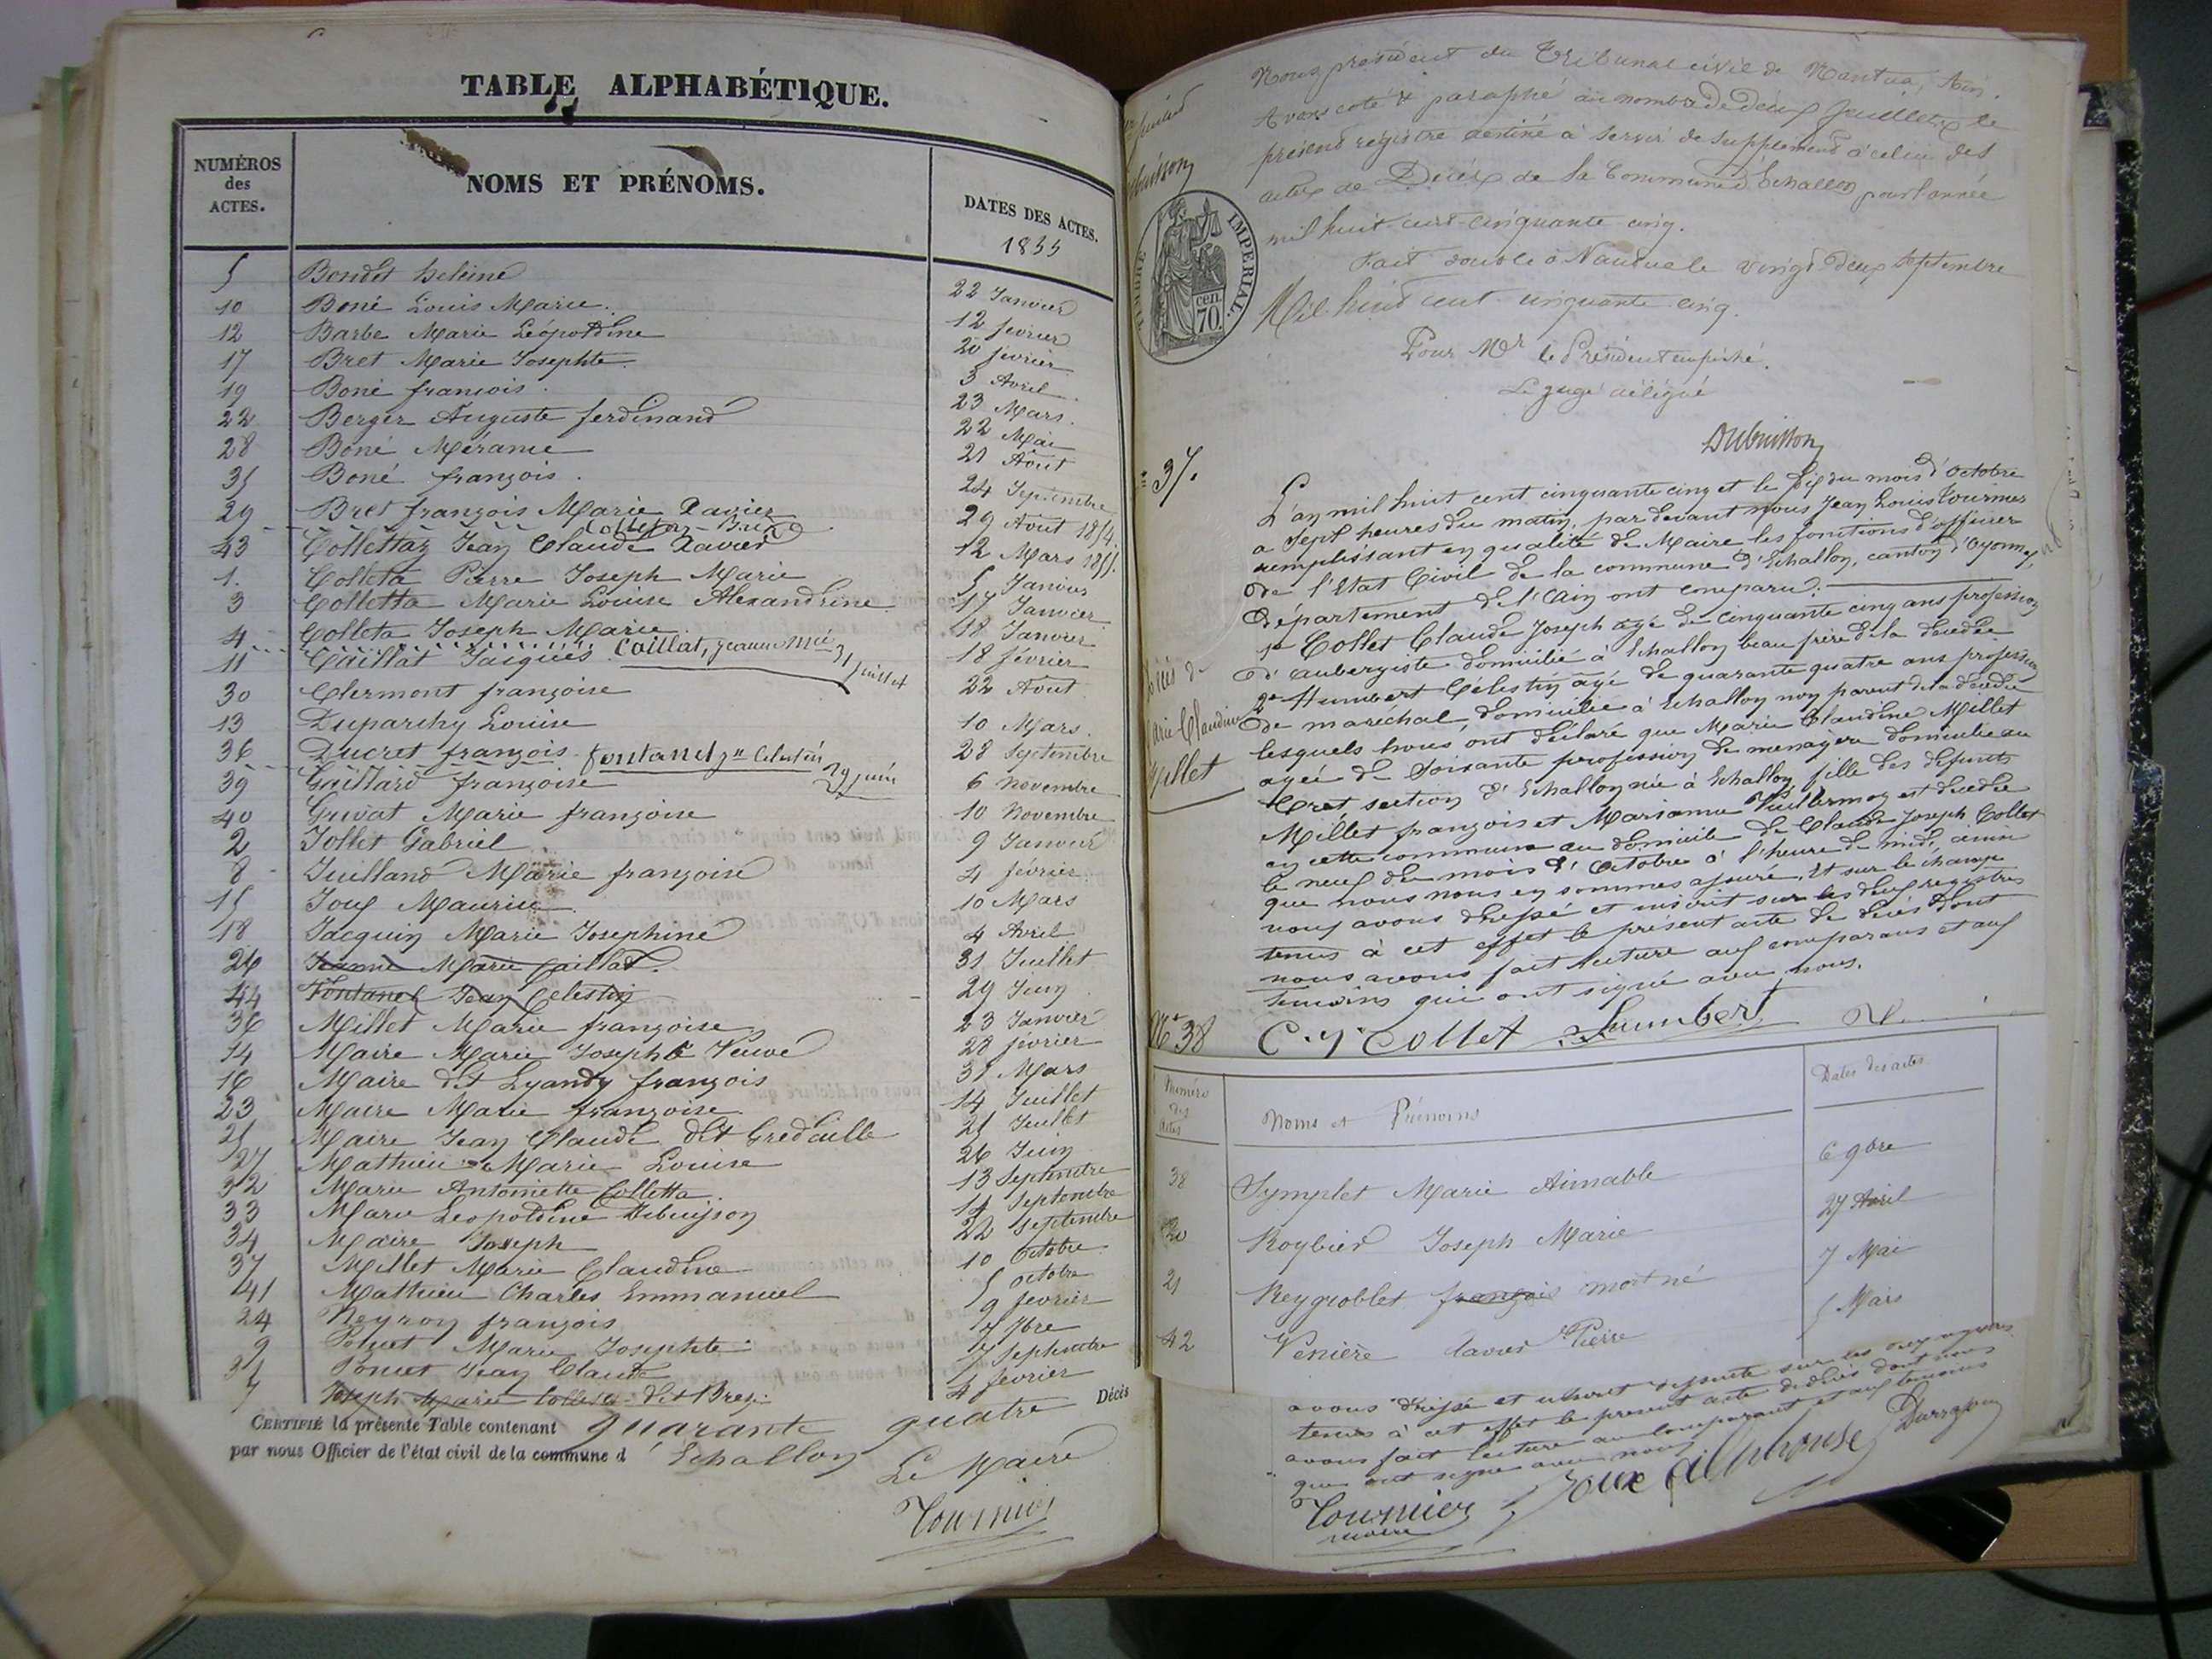 TABLE ALPHABÉTIQUE.
NUMÉROS des ACTES.
NOMS ET PRÉNOMS.
DATES DES ACTES.
1855
5 Bondet heleine 22 Janvier
10 Boné Louis Marie 12 fevrier
12 Barbe Marie Léopoldine 20 fevrier
17 Bret Marie Josephte 3 Avril
19 Boné francois 23 Mars
22 Berger Auguste ferdinand 22 Mai
28 Boné Mérame 21 Août
35 Boné françois 24 Septembre
29 Bret françois Marie Xavier 29 Août 1854
43 Collettaz Jean Claude Xavier 12 Mars 1855
1. Colleta Pierre Joseph Marie 5 Janvier
3 Colletta Marie Louise Alexandrine 17 Janvier
4 Colleta Joseph Marie 18 Janvier
11 Caillat Jacques 18 février
Caillat, jeanne Mie 31 juillet
30 Clermont françoise 22 Août
13 Duparchy Louise 10 Mars
36 Ducret françois 28 Septembre
fontanel jn Celestin 29 juin
39 Gaillard françoise 6 Novembre
40 Grivat Marie françoise 10 Novembre
2 Jollet Gabriel 9 Janvier
8 Juilland Marie françoise 4 février
15 Joux Maurice 10 Mars
18 Jacquin Marie Josephine 4 Avril
26 Jeanne Marie Caillat 31 Juillet
44 Fontanel Jean Celestin 29 Juin
36 Millet Marie françoise 23 Janvier
14 Maire Marie Josephte Veuve 28 fevrier
16 Maire dit Lyandy françois 31 Mars
23 Maire Marie françoise 14 Juillet
25 Maire Jean Claude dit Gredaille 25 Juillet
27 Mathieu Marie Louise 26 Juin
32 Marie Antoinette Colletta 13 Septembre
33 Marie Leopoldine Dubuisson 14 Septembre
34 Maire Joseph 22 Septembre
37 Millet Marie Claudine 10 Octobre
41 Mathieu Charles Emmanuel 5 octobre
24 Neyron françois 9 fevrier
9 Poncet Marie Josephte 7 9bre
31 Poncet Jean Claude 7 Septembre
7 Joseph Marie Colleta dit Brezi 4 février
CERTIFIÉ la présente Table contenant quarante quatre Décès
par nous Officier de l'état civil de la commune d'Echallon
Le Maire
Tournier
Nous président du Tribunal civil de Nantua, Ain.
Avons coté & paraphé au nombre de deux feuillets le
présent régistre destiné à servir de supplément à celui des
actes de Décès de la Commune d'Echallon pour l'année
mil huit cent cinquante cinq.
Fait double à Nantua le vingt deux Septembre
Mil huit cent cinquante cinq.
Pour Mr le Président empêché.
Le juge délégué
Dubuisson
TIMBRE IMPERIAL.
70 cen.
37.
Décès de
Marie Claudine
Millet
L'an mil huit cent cinquante cinq et le dix du mois d'Octobre
a sept heures du matin, par devant nous Jean Louis Tournier
remplissant en qualité de Maire les fonctions d'officier
de l'Etat Civil de la commune d'Echallon, canton d'Oyonnax,
département de l'Ain ont comparu:
1º Collet Claude Joseph agé de cinquante cinq ans profession
d'aubergiste domicilié à Echallon beau frère de la décédée
2º Humbert Célestin âgé de quarante quatre ans profession
de maréchal, domicilié à Echallon non parent de la décédée
lesquels nous ont déclaré que Marie Claudine Millet
agée de soixante profession de menagère domiciliée au
Crêt section d'Echallon née à Echallon fille des defunts
Millet françois et Marianne Vuillermoz est décédée
en cette commune au domicile de Claude Joseph Collet
le neuf du mois d'Octobre à l'heure de midi, ainsi
que nous nous en sommes assuré. Et sur le champ
nous avons dressé et inscrit sur les deux registres
tenus à cet effet le présent acte de décès dont
nous avons fait lecture aux comparans et aux
temoins qui ont signé avec nous.
C. J Collet Humbert
No 38
Numéro des actes
Noms et Prénoms
Dates des actes
38 Symplet Marie Aimable 6 9bre
20 Roybier Joseph Marie 27 Avril
21 Reygroblet françois mort né 7 Mai
42 Venière Xavier Pierre 5 Mars
avons dressé et inscrit desuite sur les deux registres
tenus à cet effet le present acte de décès dont nous
avons fait lecture au comparant et aux temoins
qui ont signé avec nous
Tournier maire
Joux Alphonse